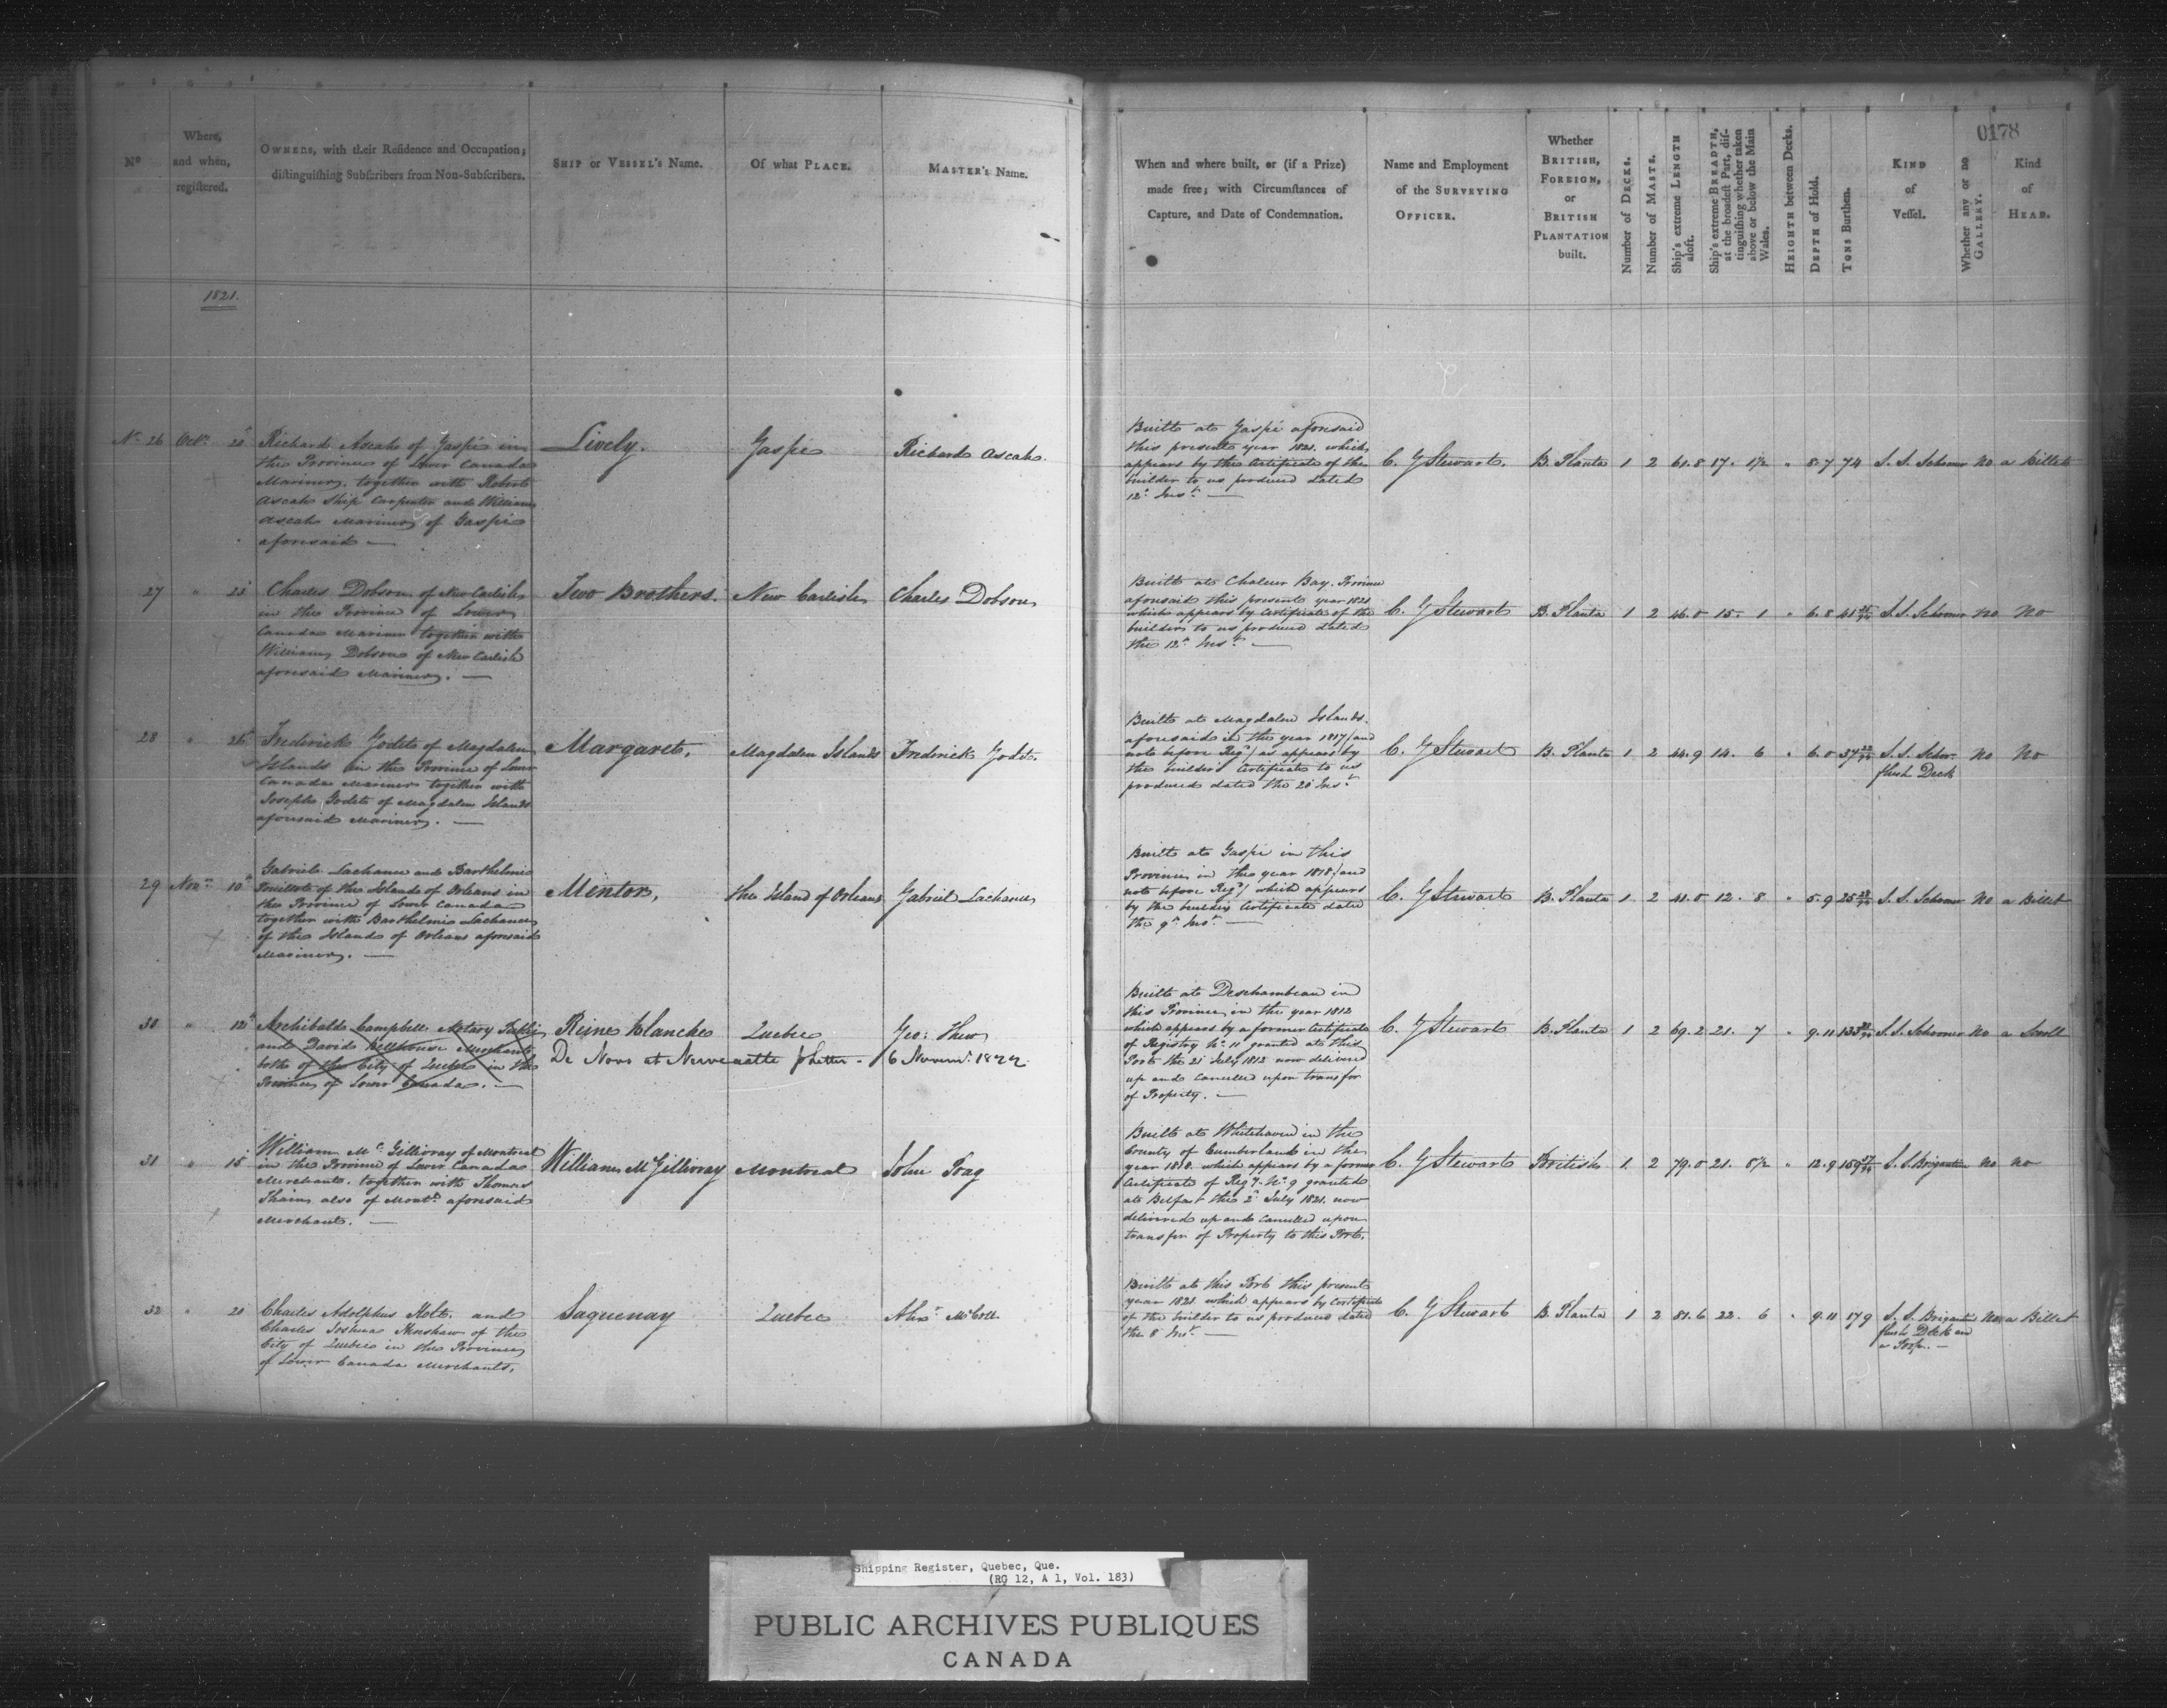 0178
No
Where,
and when,
registered.
OWNERS, with their Residence and Occupation;
distinguishing Subscribers from Non-Subscribers.
SHIP or VESSEL's Name.
Of what PLACE.
MASTER's Name.
When and where built, or (if a Prize)
made free; with Circumstances of
Capture, and Date of Condemnation.
Name and Employment
of the SURVEYING
OFFICER.
Whether
BRITISH,
FOREIGN,
or
BRITISH
PLANTATION
built.
Number of DECKS.
Number of MASTS.
Ship's extreme LENGTH
aloft.
Ship's extreme BREADTH,
at the broadest Part, dis-
tinguishing whether taken
above or below the Main
Wales.
HEIGHTH between Decks.
DEPTH of Hold.
TONS Burthen.
KIND
of
Vessel.
Whether any or no
GALLERY.
Kind
of
HEAD.
1821.
No 26 Octr 20
Richard Ascah of Gaspé in
the Province of Lower Canada
Mariner, together with Robert
Ascah Ship Carpenter and William
Ascah Mariner of Gaspé
aforesaid —
Lively.
Gaspé
Richard Ascah.
Built at Gaspé aforesaid
this present year 1821. which
appears by the Certificate of the
builder to us produced dated
12th Inst. —
C. G Stewart. B. Planta 1 2 61.8 17. 1½ " 8.7 74 S. S. Schooner No a Billet
27 " 23
Charles Dobson of New Carlisle
in the Province of Lower
Canada Mariner together with
William Dobson of New Carlisle
aforesaid Mariner. —
Two Brothers.
New Carlisle
Charles Dobson
Built at Chaleur Bay. Province
aforesaid this present year 1821
which appears by Certificate of the
builder to us produced dated
the 12th Inst. —
C. G Stewart B. Planta 1 2 46.0 15. 1 " 6.8 41 S. S. Schooner No No
28 " 26
Frederick Godet of Magdalen
Islands in the Province of Lower
Canada Mariner together with
Joseph Godet of Magdalen Islands
aforesaid Mariner. —
Margaret,
Magdalen Islands
Frederick Godet.
Built at Magdalen Islands.
aforesaid in the year 1817 (and
not before Regd) as appears by
the builders Certificate to us
produced dated the 20 Inst
C. G Stewart B. Planta 1 2 44.9 14. 6 " 6.0 37 S. S. Schor.
flush Deck
No No
29 Novr 10th
Gabriel Lachance and Barthelemie
Pouillote of the Island of Orleans in
the Province of Lower Canada
together with Barthelemie Lachance
of the Island of Orleans aforesaid
Mariners. —
Mentor,
the Island of Orleans
Gabriel Lachance
Built at Gaspé in this
Province in the year 1818 (and
not before Regd) which appears
by the builders Certificate dated
the 9th Inst. —
C. G Stewart B. Planta 1 2 41.0 12. 8 " 5.9 25 S. S. Schooner No a Billet
30 " 12th
Archibald Campbell Notary Public
and David Bellhouse Merchant
both of the City of Quebec in the
Province of Lower Canada. —
Reine Blanche
Quebec
Geo: Thew
De Novo et 6 Novem. 1822
Built at Deschambeau in
this Province in the year 1812
which appears by a former Certificate
of Registry No. 11 granted at this
Port the 21 July 1812 now delivered
up and cancelled upon transfer
of Property. —
C. G Stewart B. Planta 1 2 69.2 21. 7 " 9.11 133 S. S. Schooner No a Scroll
31 " 15
William McGillivray of Montreal
in the Province of Lower Canada
Merchant. together with Thomas
Thain also of Montl. aforesaid
Merchant. —
William McGillivray
Montreal
John
Built at Whitehaven in the
County of Cumberland in the
year 1818. which appears by a former
Certificate of Regy. No. 9 granted
at Belfast the 2d July 1821. now
delivered up and cancelled upon
transfer of Property to this Port.
C. G Stewart British 1 2 79.0 21. 8½ " 12.9 159 S. S. Brigantine No No
32 " 20
Charles Adolphus Holt and
Charles Joshua Henshaw of the
City of Quebec in the Province
of Lower Canada Merchants,
Saguenay
Quebec
Alexr McColl
Built at this Port this present
year 1821 which appears by Certificate
of the builder to us produced dated
the 8 Inst. —
C. G Stewart B. Planta 1 2 81.6 22. 6 " 9.11 179 S. S. Brigantine
flush Deck and
a Poop. —
No a Billet
Shipping Register, Quebec, Que.
(RG 12, A 1, Vol. 183)
PUBLIC ARCHIVES PUBLIQUES
CANADA